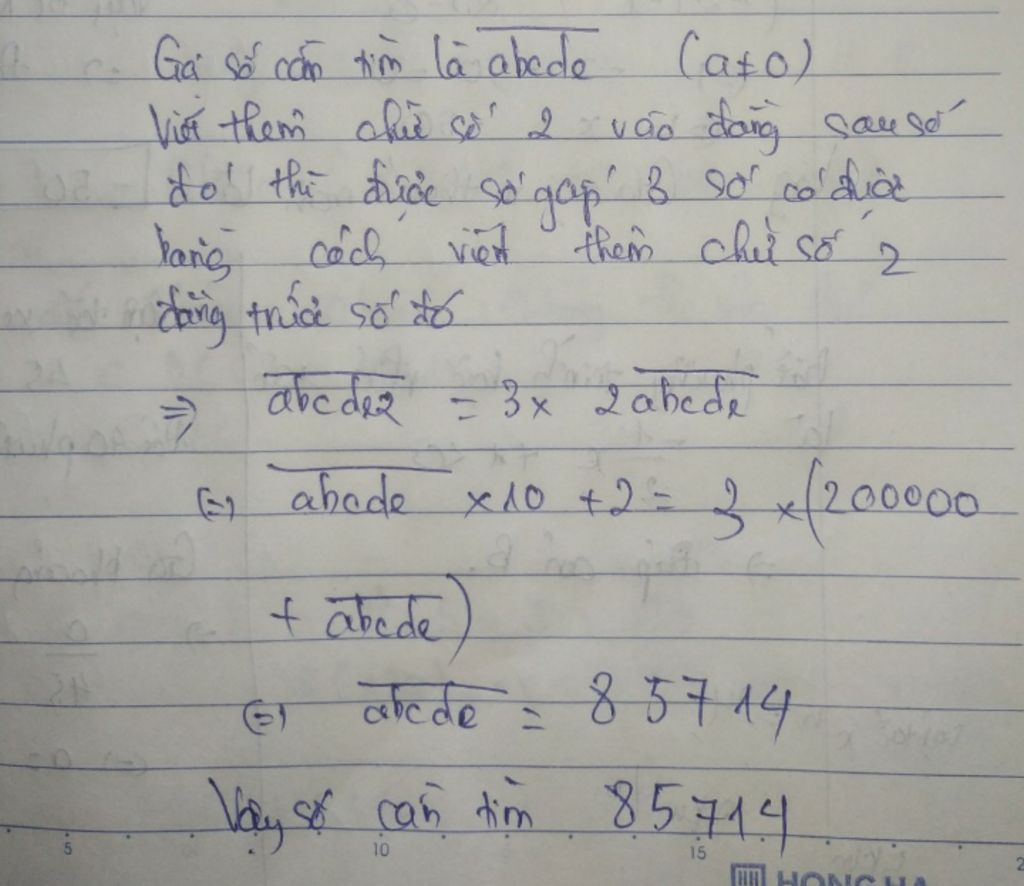 Gọi số cần tìm là abcde (a≠0)
Viết thêm chữ số 2 vào đằng sau số
đó thì được số gấp 3 số có được
bằng cách viết thêm chữ số 2
đằng trước số đó
⇒ abcde2 = 3 x 2abcde
(=) abcde x10 +2 = 3 x (200000
+ abcde)
(=) abcde = 85714
Vậy số cần tìm 85714
5 10 15 2
HONG HA